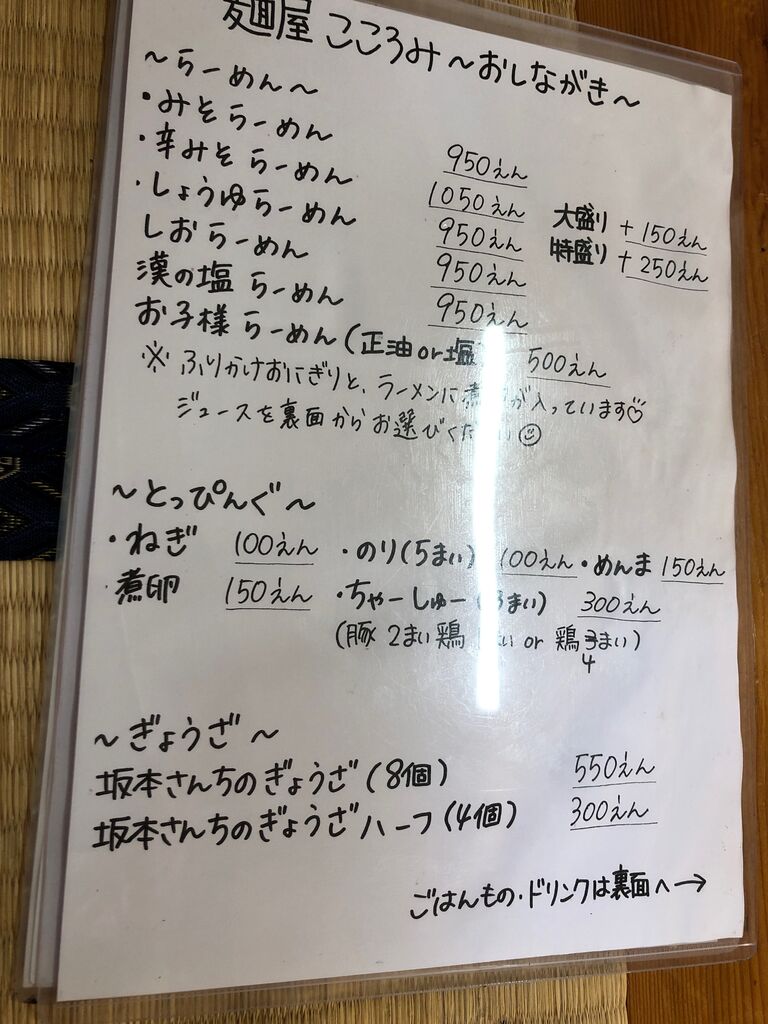 麺屋 こころみ ~おしながき~
~らーめん~
・みそらーめん 950えん
・辛みそらーめん 1050えん
・しょうゆらーめん 950えん
しおらーめん 950えん
漢の塩らーめん 950えん
大盛り +150えん
特盛り +250えん
お子様らーめん(正油or塩 500えん
※ふりかけおにぎりと、ラーメンに煮 が入っています♡
ジュースを裏面からお選びくだ ☺
~とっぴんぐ~
・ねぎ 100えん ・のり(5まい) 100えん ・めんま 150えん
煮卵 150えん ・ちゃーしゅー( まい) 300えん
(豚2まい鶏 まい or 鶏4まい)
~ぎょうざ~
坂本さんちのぎょうざ(8個) 550えん
坂本さんちのぎょうざハーフ(4個) 300えん
ごはんもの・ドリンクは裏面へ→